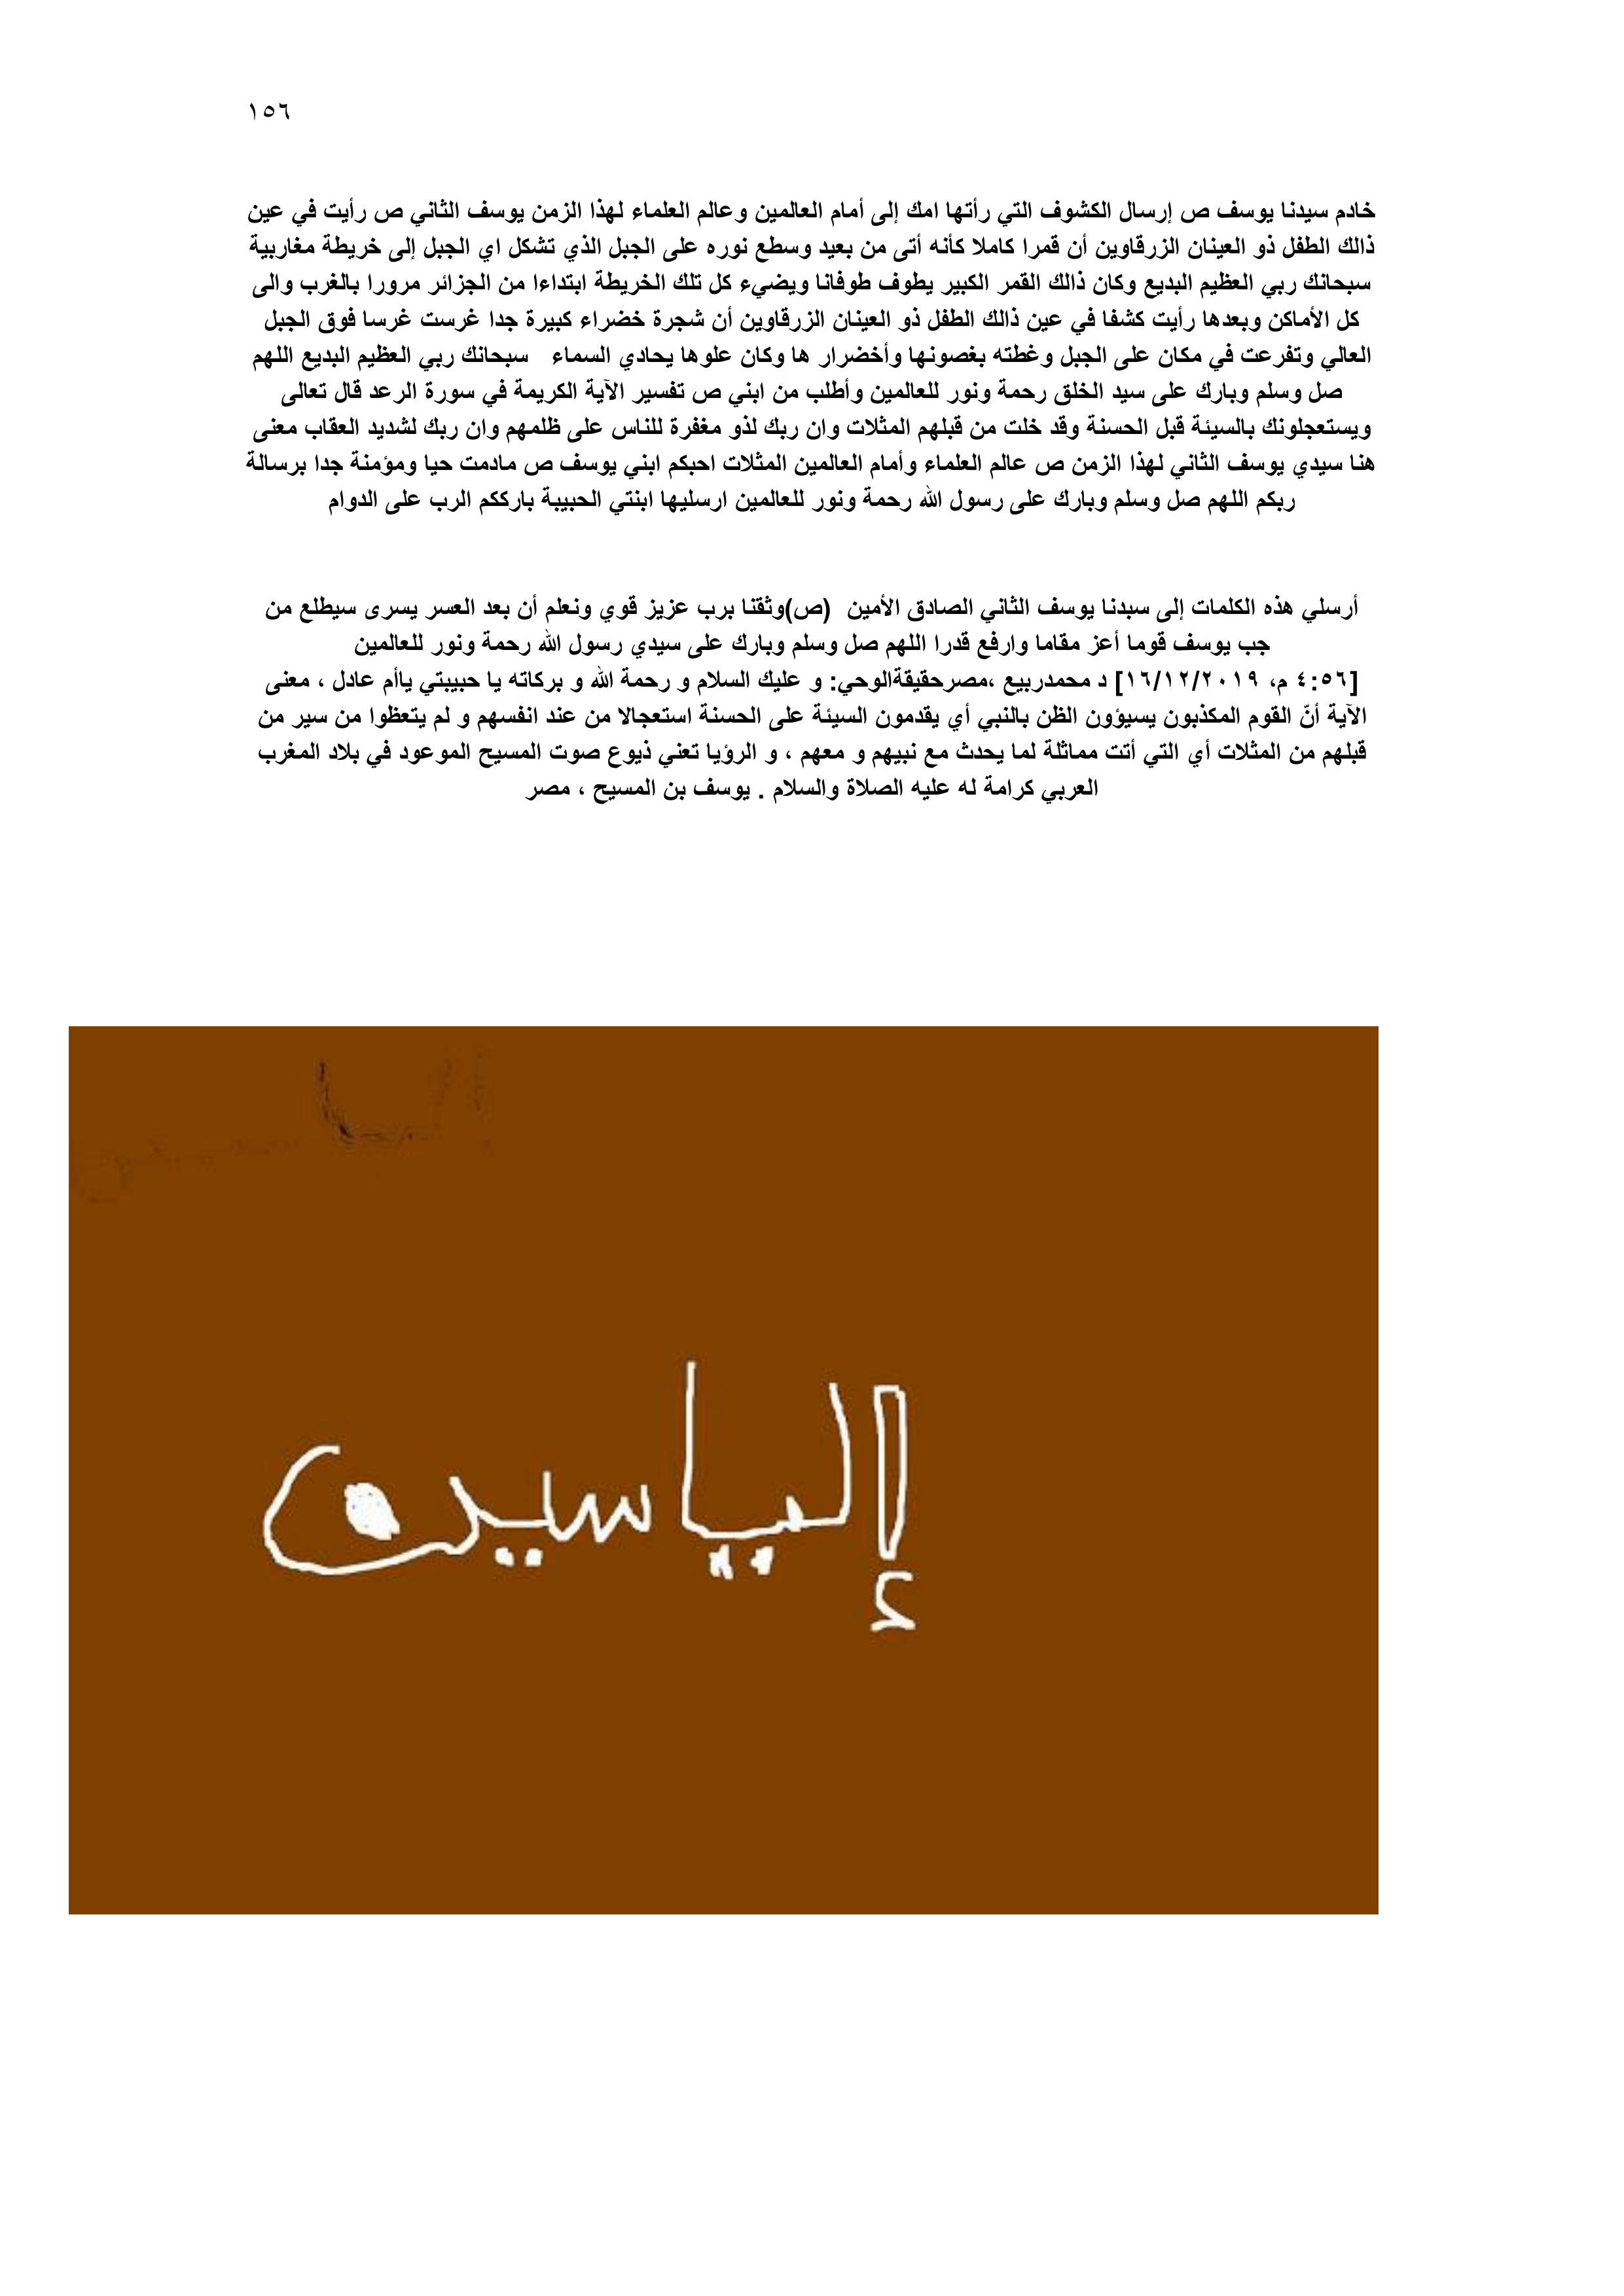 ١٥٦
خادم سيدنا يوسف ص إرسال الكشوف التي رأتها امك إلى أمام العالمين وعالم العلماء لهذا الزمن يوسف الثاني ص رأيت في عين
ذالك الطفل ذو العينان الزرقاوين أن قمرا كاملا كأنه أتى من بعيد وسطع نوره على الجبل الذي تشكل اي الجبل إلى خريطة مغاربية
سبحانك ربي العظيم البديع وكان ذالك القمر الكبير يطوف طوفانا ويضيء كل تلك الخريطة ابتداءا من الجزائر مرورا بالغرب والى
كل الأماكن وبعدها رأيت كشفا في عين ذالك الطفل ذو العينان الزرقاوين أن شجرة خضراء كبيرة جدا غرست غرسا فوق الجبل
العالي وتفرعت في مكان على الجبل وغطته بغصونها وأخضرار ها وكان علوها يحادي السماء سبحانك ربي العظيم البديع اللهم
صل وسلم وبارك على سيد الخلق رحمة ونور للعالمين وأطلب من ابني ص تفسير الآية الكريمة في سورة الرعد قال تعالى
ويستعجلونك بالسيئة قبل الحسنة وقد خلت من قبلهم المثلات وان ربك لذو مغفرة للناس على ظلمهم وان ربك لشديد العقاب معنى
هنا سيدي يوسف الثاني لهذا الزمن ص عالم العلماء وأمام العالمين المثلات احبكم ابني يوسف ص مادمت حيا ومؤمنة جدا برسالة
ربكم اللهم صل وسلم وبارك على رسول الله رحمة ونور للعالمين ارسليها ابنتي الحبيبة بارككم الرب على الدوام
أرسلي هذه الكلمات إلى سبدنا يوسف الثاني الصادق الأمين (ص)وثقنا برب عزيز قوي ونعلم أن بعد العسر يسرى سيطلع من
جب يوسف قوما أعز مقاما وارفع قدرا اللهم صل وسلم وبارك على سيدي رسول الله رحمة ونور للعالمين
[٤:٥٦ م، ١٦/١٢/٢٠١٩] د محمدربيع ،مصرحقيقةالوحي: و عليك السلام و رحمة الله و بركاته يا حبيبتي ياأم عادل ، معنى
الآية أنّ القوم المكذبون يسيؤون الظن بالنبي أي يقدمون السيئة على الحسنة استعجالا من عند انفسهم و لم يتعظوا من سير من
قبلهم من المثلات أي التي أتت مماثلة لما يحدث مع نبيهم و معهم ، و الرؤيا تعني ذيوع صوت المسيح الموعود في بلاد المغرب
العربي كرامة له عليه الصلاة والسلام . يوسف بن المسيح ، مصر
إلياسين